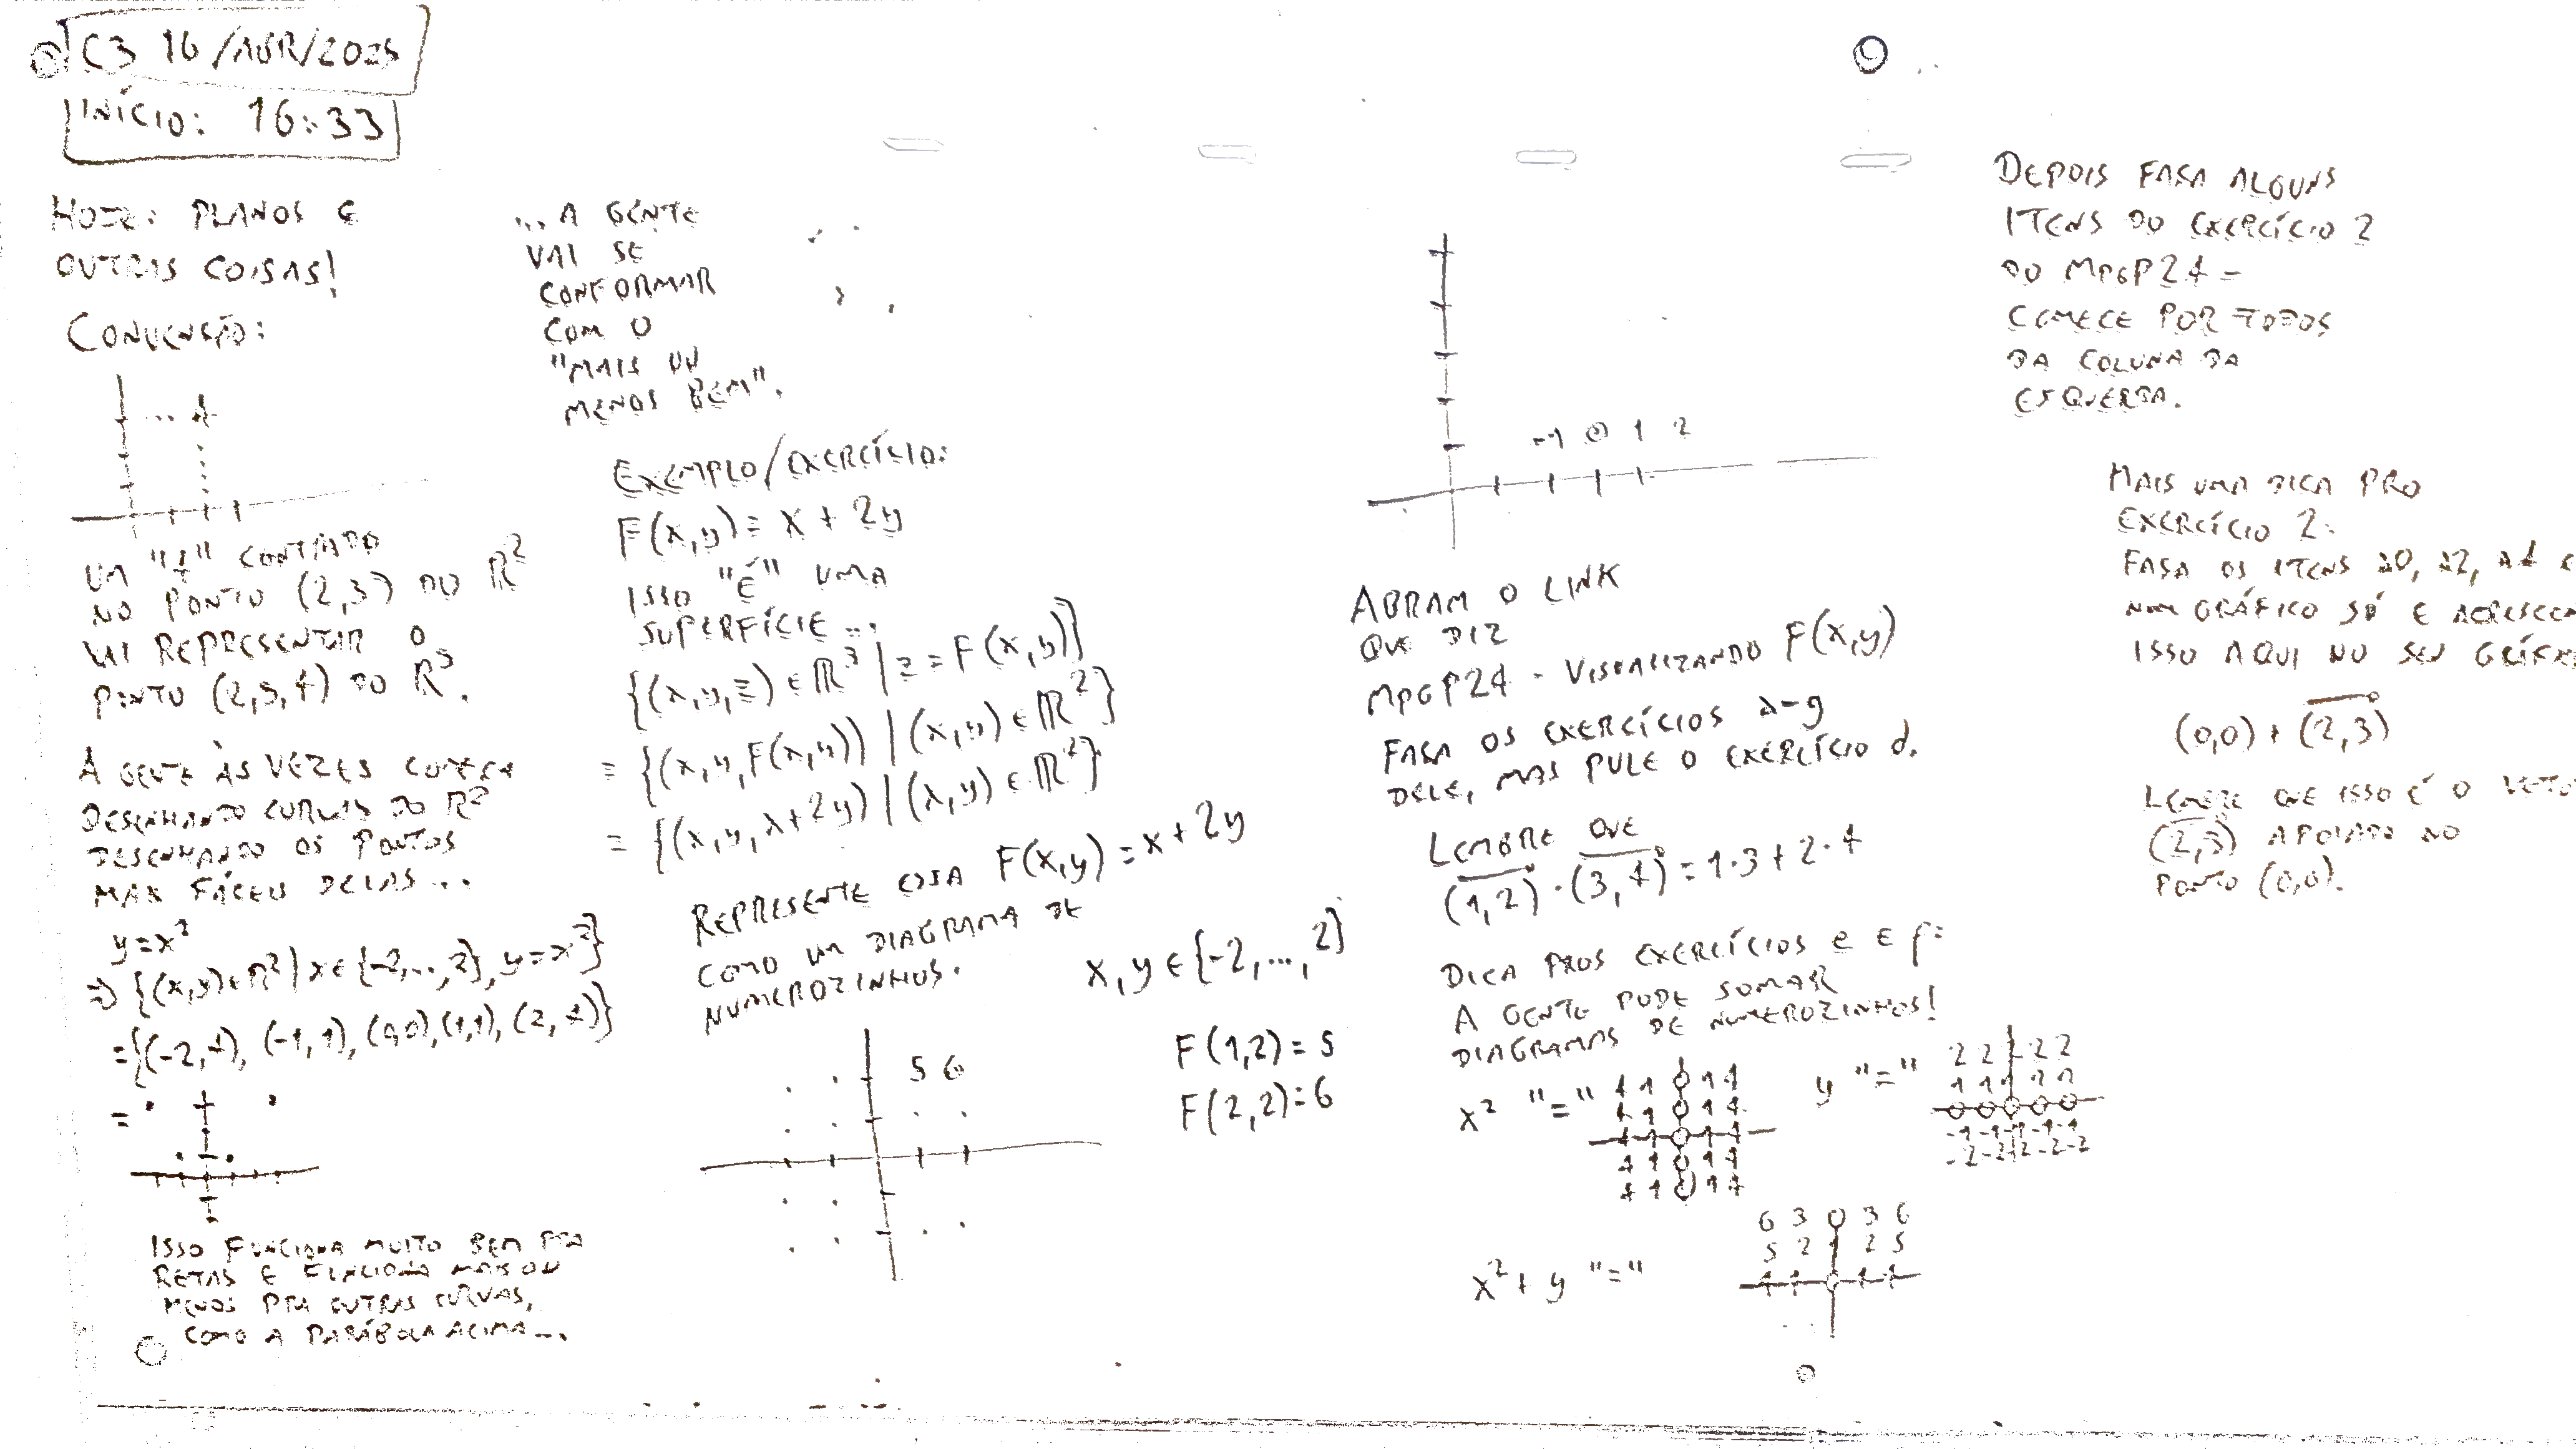 C3 16/ABR/2025
INÍCIO: 16:33
HOJE: PLANOS E
OUTRAS COISAS!
CONVENSÃO:
... 4
UM "4" CONTADO
NO PONTO (2,3) DO ℝ²
VAI REPRESENTAR O
PONTO (2,3,4) DO ℝ³.
A GENTE ÀS VEZES COMEÇA
DESENHANDO CURVAS DO ℝ²
DESENHANDO OS PONTOS
MAIS FÁCEIS DELAS...
y=x²
⇒ {(x,y)∈ℝ² | x∈{-2,...,2}, y=x²}
={(-2,4), (-1,1), (0,0), (1,1), (2,4)}
=
ISSO FUNCIONA MUITO BEM PRA
RETAS E FUNCIONA MAIS OU
MENOS PRA OUTRAS CURVAS,
COMO A PARÁBOLA ACIMA...
... A GENTE
VAI SE
CONFORMAR
COM O
"MAIS OU
MENOS BEM".
EXEMPLO/EXERCÍCIO:
F(x,y) = x + 2y
ISSO "É" UMA
SUPERFÍCIE...
{(x,y,z)∈ℝ³ | z = F(x,y)}
= {(x,y,F(x,y)) | (x,y)∈ℝ²}
= {(x,y,x+2y) | (x,y)∈ℝ²}
REPRESENTE ESSA F(x,y) = x + 2y
COMO UM DIAGRAMA DE
NUMEROZINHOS.
x,y ∈ {-2,...,2}
5 6
F(1,2) = 5
F(2,2) = 6
-1 0 1 2
ABRAM O LINK
QUE DIZ
MPGP24 - VISUALIZANDO F(x,y)
FASA OS EXERCÍCIOS a-g
DELE, MAS PULE O EXERCÍCIO d.
LEMBRE QUE
(1,2)·(3,4) = 1·3 + 2·4
DICA PROS EXERCÍCIOS e E f:
A GENTE PODE SOMAR
DIAGRAMAS DE NUMEROZINHOS!
x² "="
4 1 0 1 4
4 1 0 1 4
4 1 0 1 4
4 1 0 1 4
4 1 0 1 4
y "="
2 2 2 2 2
1 1 1 1 1
0 0 0 0 0
-1 -1 -1 -1 -1
-2 -2 -2 -2 -2
x² + y "="
6 3 0 3 6
5 2 1 2 5
4 1 0 1 4
DEPOIS FASA ALGUNS
ITENS DO EXERCÍCIO 2
DO MPGP24 -
COMECE POR TODOS
DA COLUNA DA
ESQUERDA.
MAIS UMA DICA PRO
EXERCÍCIO 2:
FASA OS ITENS a0, a2, a4 E
NUM GRÁFICO SÓ E ACRESCEN
ISSO AQUI NO SEU GRÁFI
(0,0) + (2,3)
LEMBRE QUE ISSO É O VETO
(2,3) APOIADO NO
PONTO (0,0).